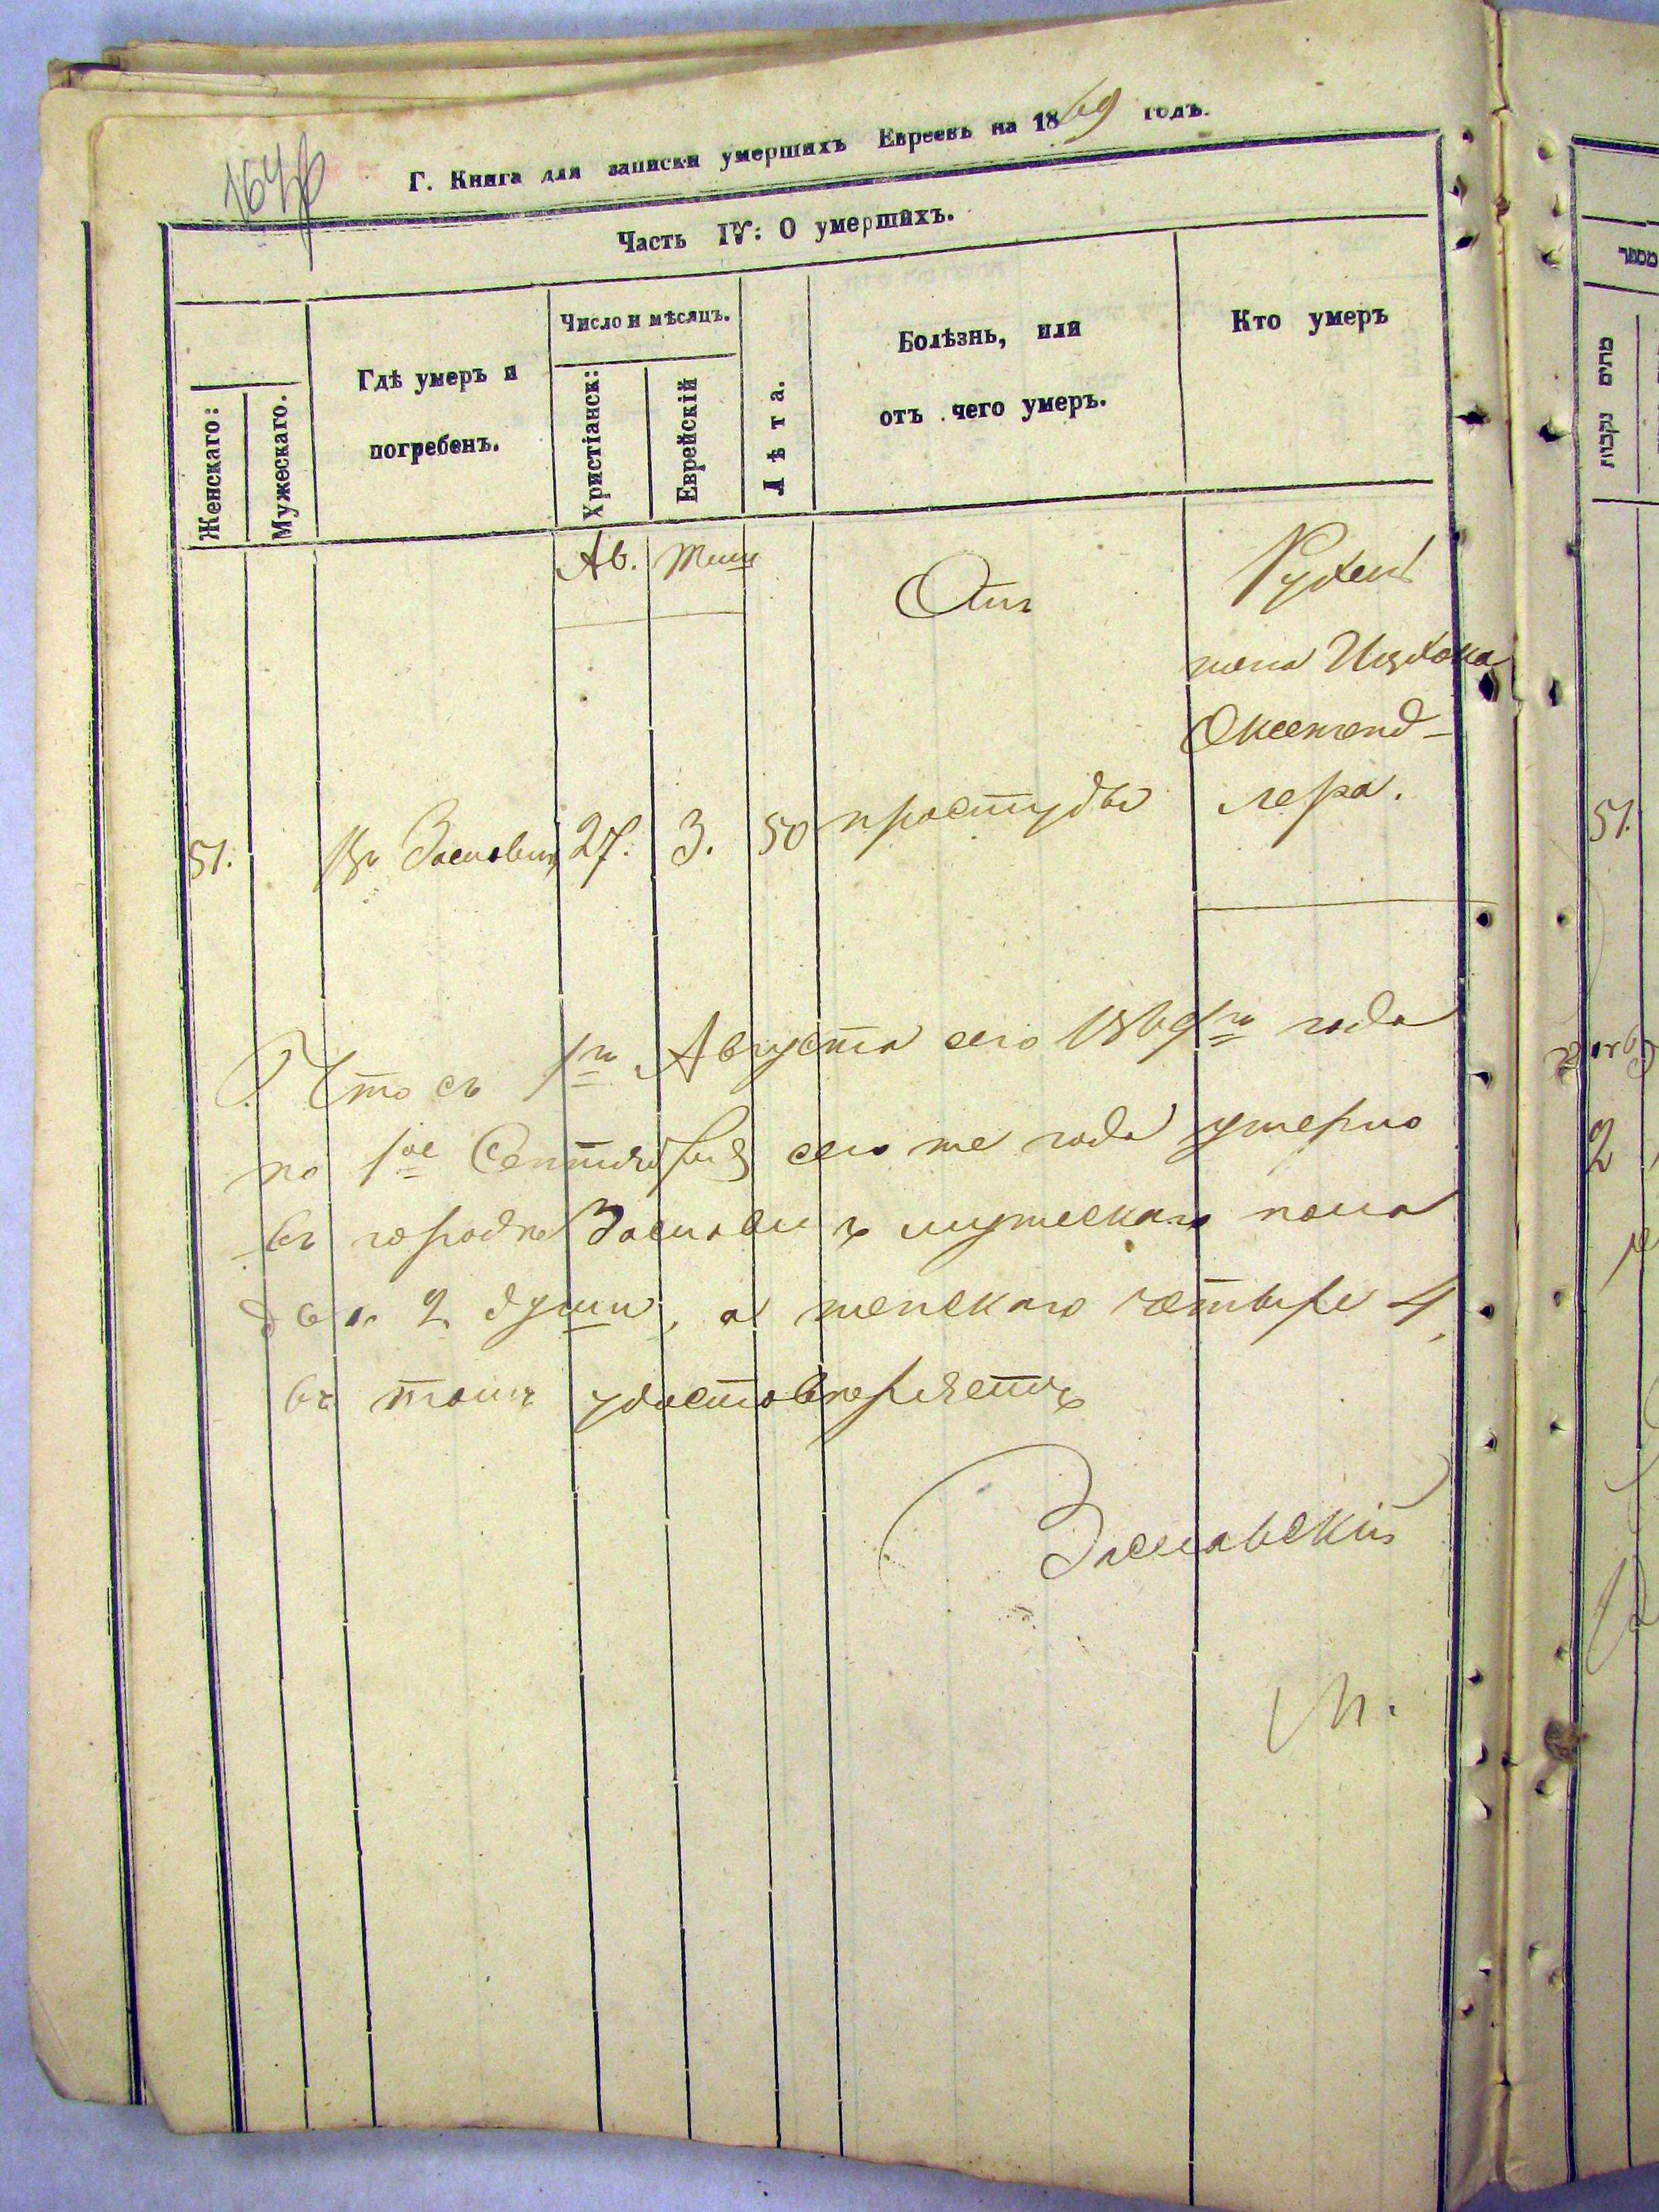 164
Г. Книга для записки умершихъ Евреевъ на 1869 годъ.
Часть IV: О умершихъ.
Женскаго:
Мужескаго.
Гдѣ умеръ и
погребенъ.
Число и мѣсяцъ.
Христіанск:
Еврейскій
Лѣта.
Болѣзнь, или
отъ чего умеръ.
Кто умеръ
Ав.
Тиш
51.
въ Заславѣ
27.
3.
50
Отъ
простуды
Рухель
жена Ицхока
Оксенгенд-
лера.
Что съ 1го Августа сего 1869го года
по 1ое Сентября сего же года умерло
въ городѣ Заславлѣ мужескаго пола
двѣ 2 души, а женскаго четыре 4,
въ томъ удостовѣряетъ
Заславскій
מספר
נקבות
זכרים
51.
2